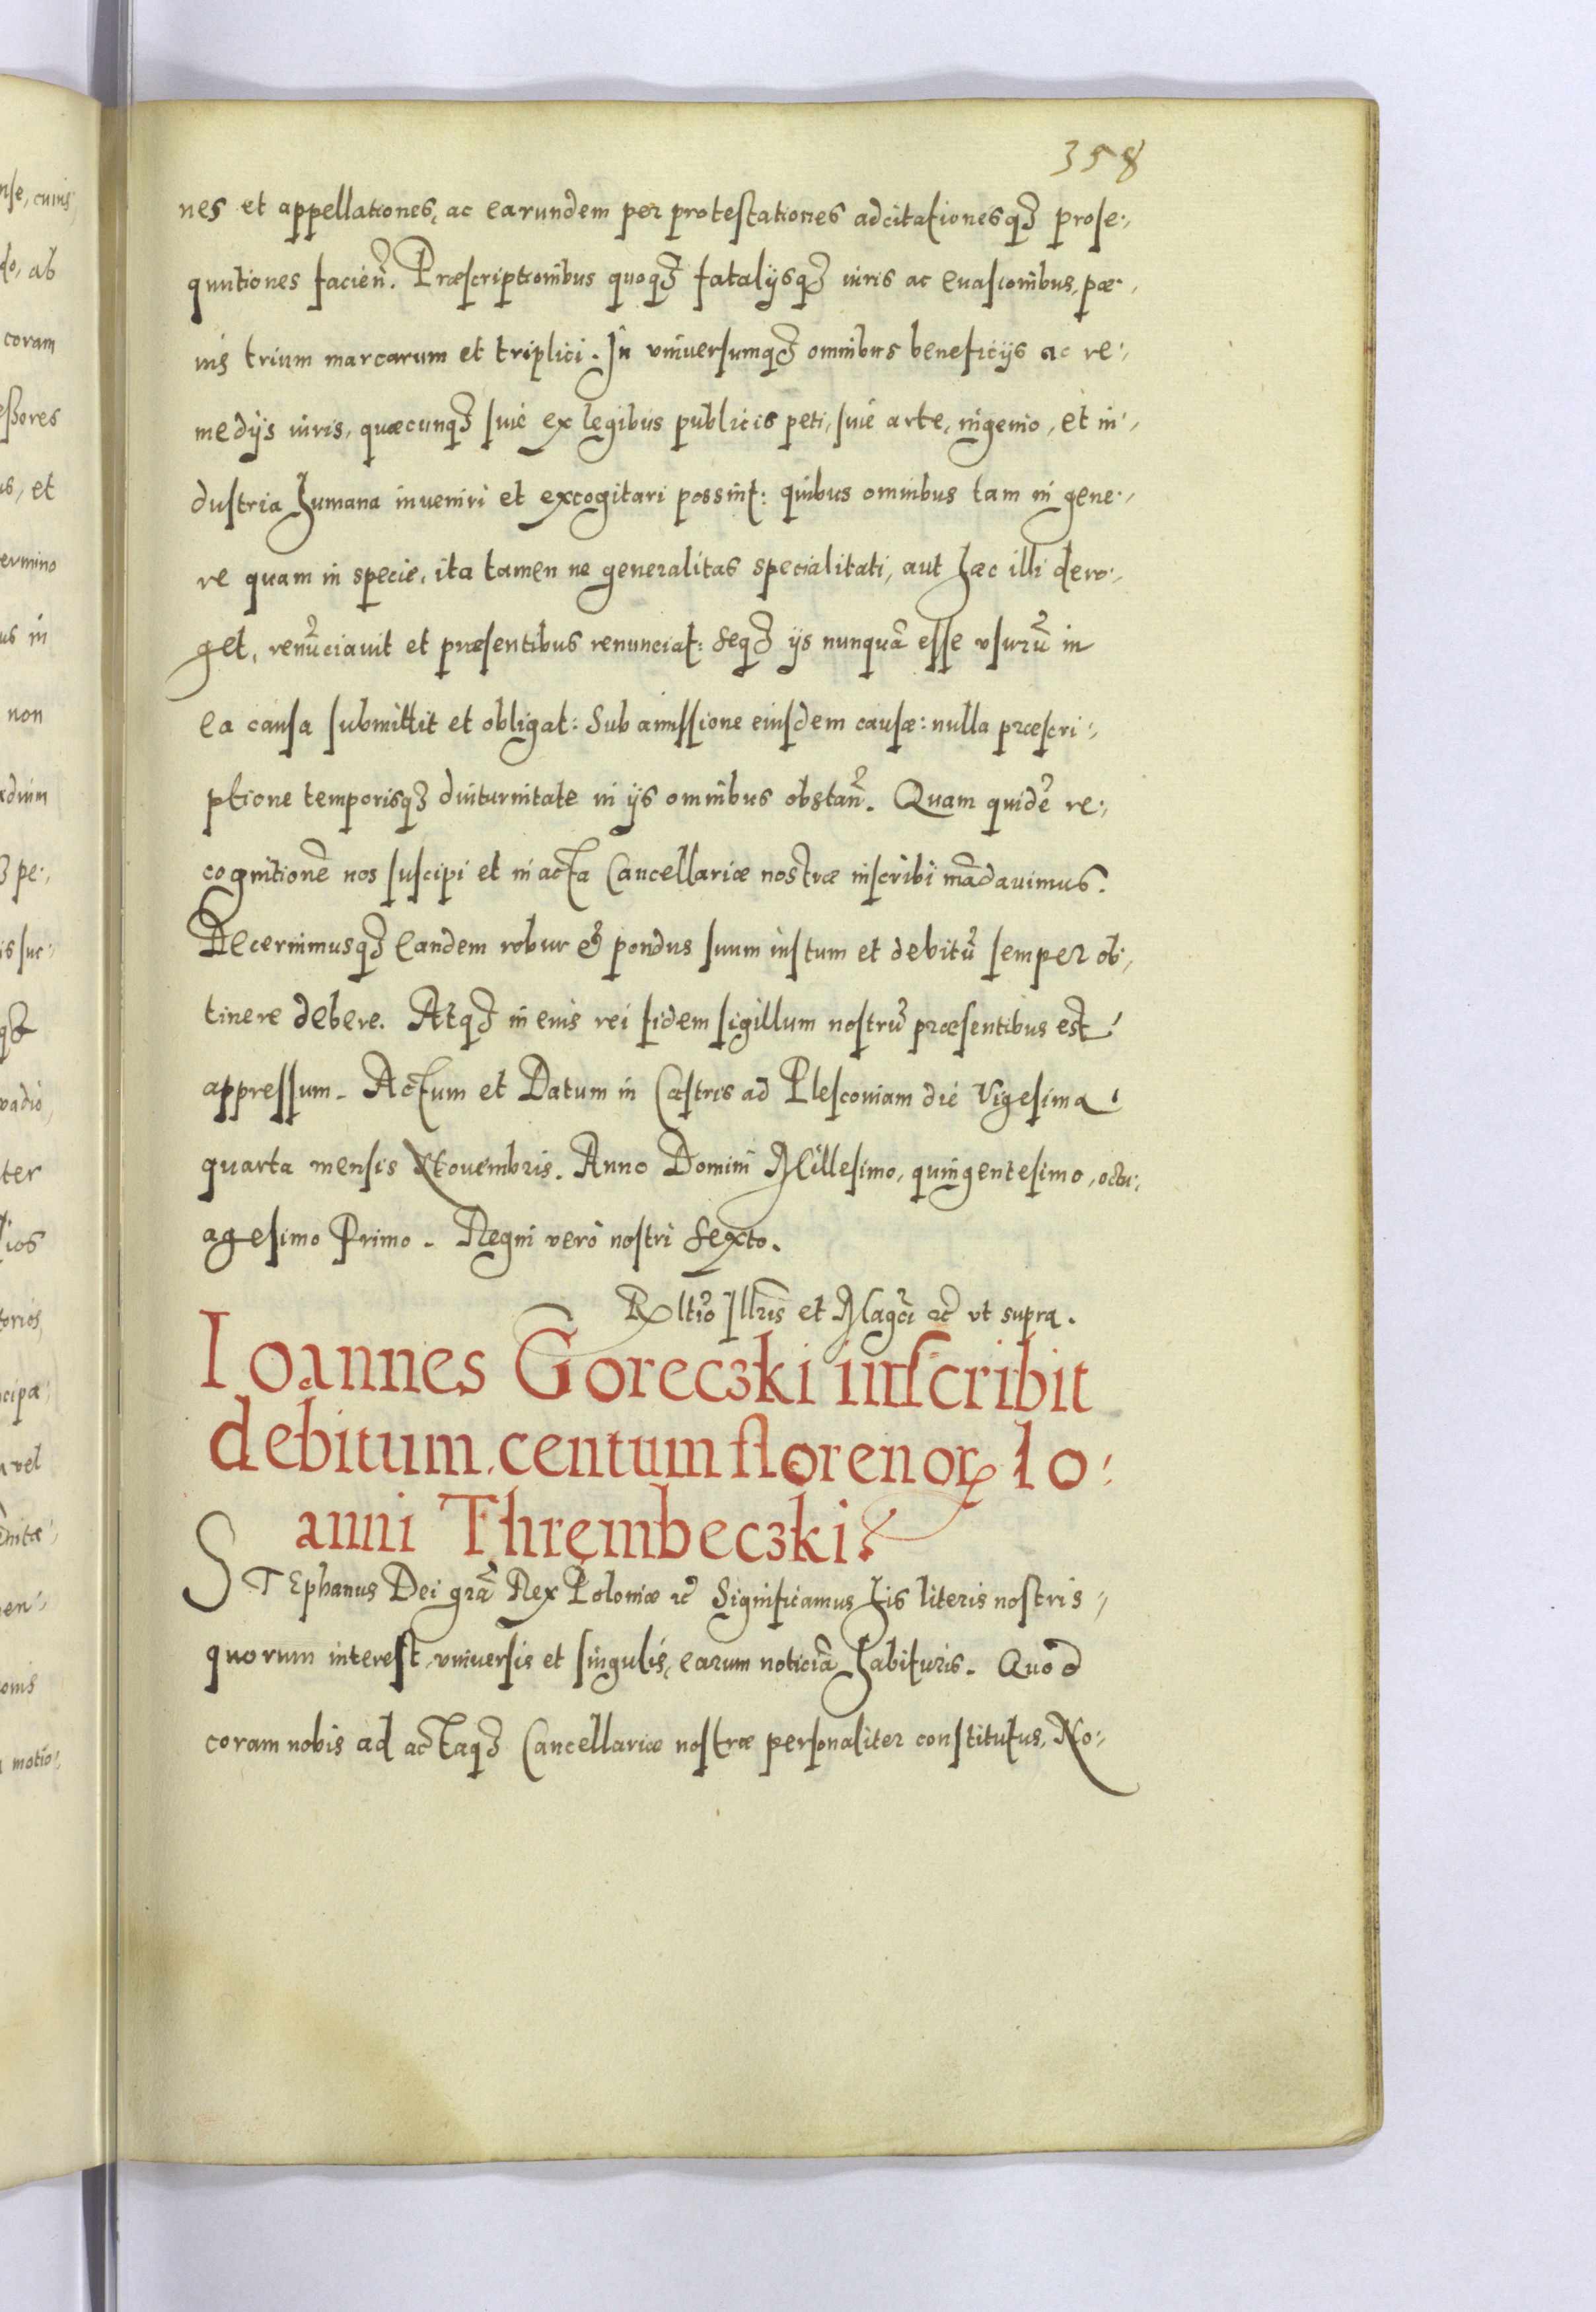 358
nes et appellationes, ac earundem per protestationes adcitationesq3 prose:,
quutiones facień. Præscriptionibus quoq3 fatalijsq3 iuris ac euasionibus, pæ:,
nis trium marcarum et triplici. In vniuersumq3 omnibus beneficijs ac re:,
medijs iuris, quæcunq3 siue ex legibus publicis peti, siue arte, ingenio, et in:,
dustria humana inueniri et excogitari possint: quibus omnibus tam in gene:,
re quam in specie, ita tamen ne generalitas specialitati, aut hæc illi dero:,
get, renūciauit et præsentibus renunciat: seq3 ijs nunquā esse vsurū in
ea causa submittit et obligat: Sub amissione eiusdem causæ: nulla præscri:,
ptione temporisq3 diuturnitate in ijs omnibus obstań. Quam quidē re:,
cognitionē nos suscipi et in acta Cancellariæ nostræ inscribi mādauimus.
Decernimusq3 eandem robur & pondus suum iustum et debitū semper ob:,
tinere debere. Atq3 in eius rei fidem sigillum nostrū præsentibus est
appressum. Actum et Datum in Castris ad Plescouiam die Vigesima
quarta mensis Nouembris. Anno Domini Millesimo, quingentesimo, octu:,
agesimo Primo. Regni vero nostri Sexto.
Rltio Illris et Magci etc̄ vt supra.
Ioannes Gorec3ki inscribit
debitum centum florenoꝝ Io:
anni Thręmbec3ki.
STEphanus Dei grā Rex Poloniæ etc̄ Significamus his literis nostris,
quorum interest, vniuersis et singulis, earum noticiā habituris. Quod
coram nobis ad actaq3 Cancellariæ nostræ personaliter constitutus, No:,